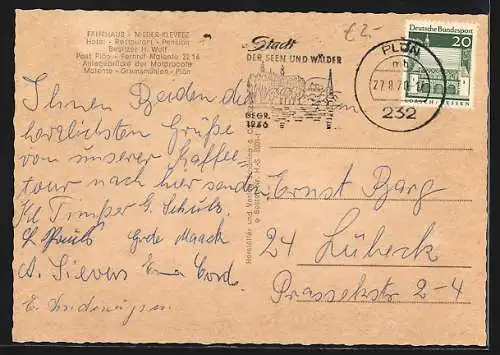 FÄHRHAUS - NIEDER-KLEVEEZ
Hotel - Restaurant - Pension
Besitzer H. Wulf
Post Plön - Fernruf Malente 22 16
Anlegebrücke der Motorboote
Malente - Gremsmühlen - Plön
£2.-
Stadt
DER SEEN UND WÄLDER
BEGR.
1236
PLÖN
mb
27.8.70
232
Deutsche Bundespost
20
LORSCH / HESSEN
Ihnen Beiden die
herzlichsten Grüße
von unserer Kaffee-
tour nach hier senden
Timper G. Schulz
Grete Maack
A. Sievers Cords
E.
Ernst Barg
24 Lübeck
2-4